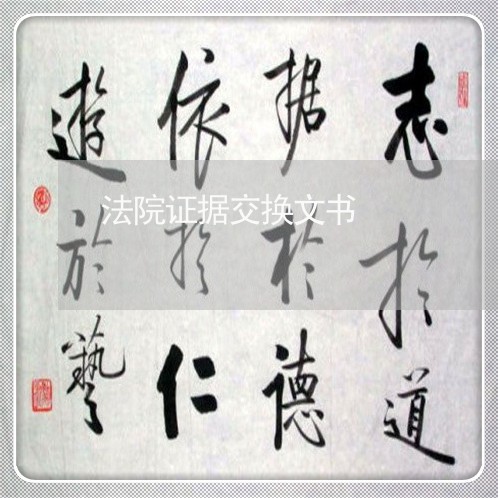 志於道
据於德
依於仁
遊於藝
法院证据交换文书